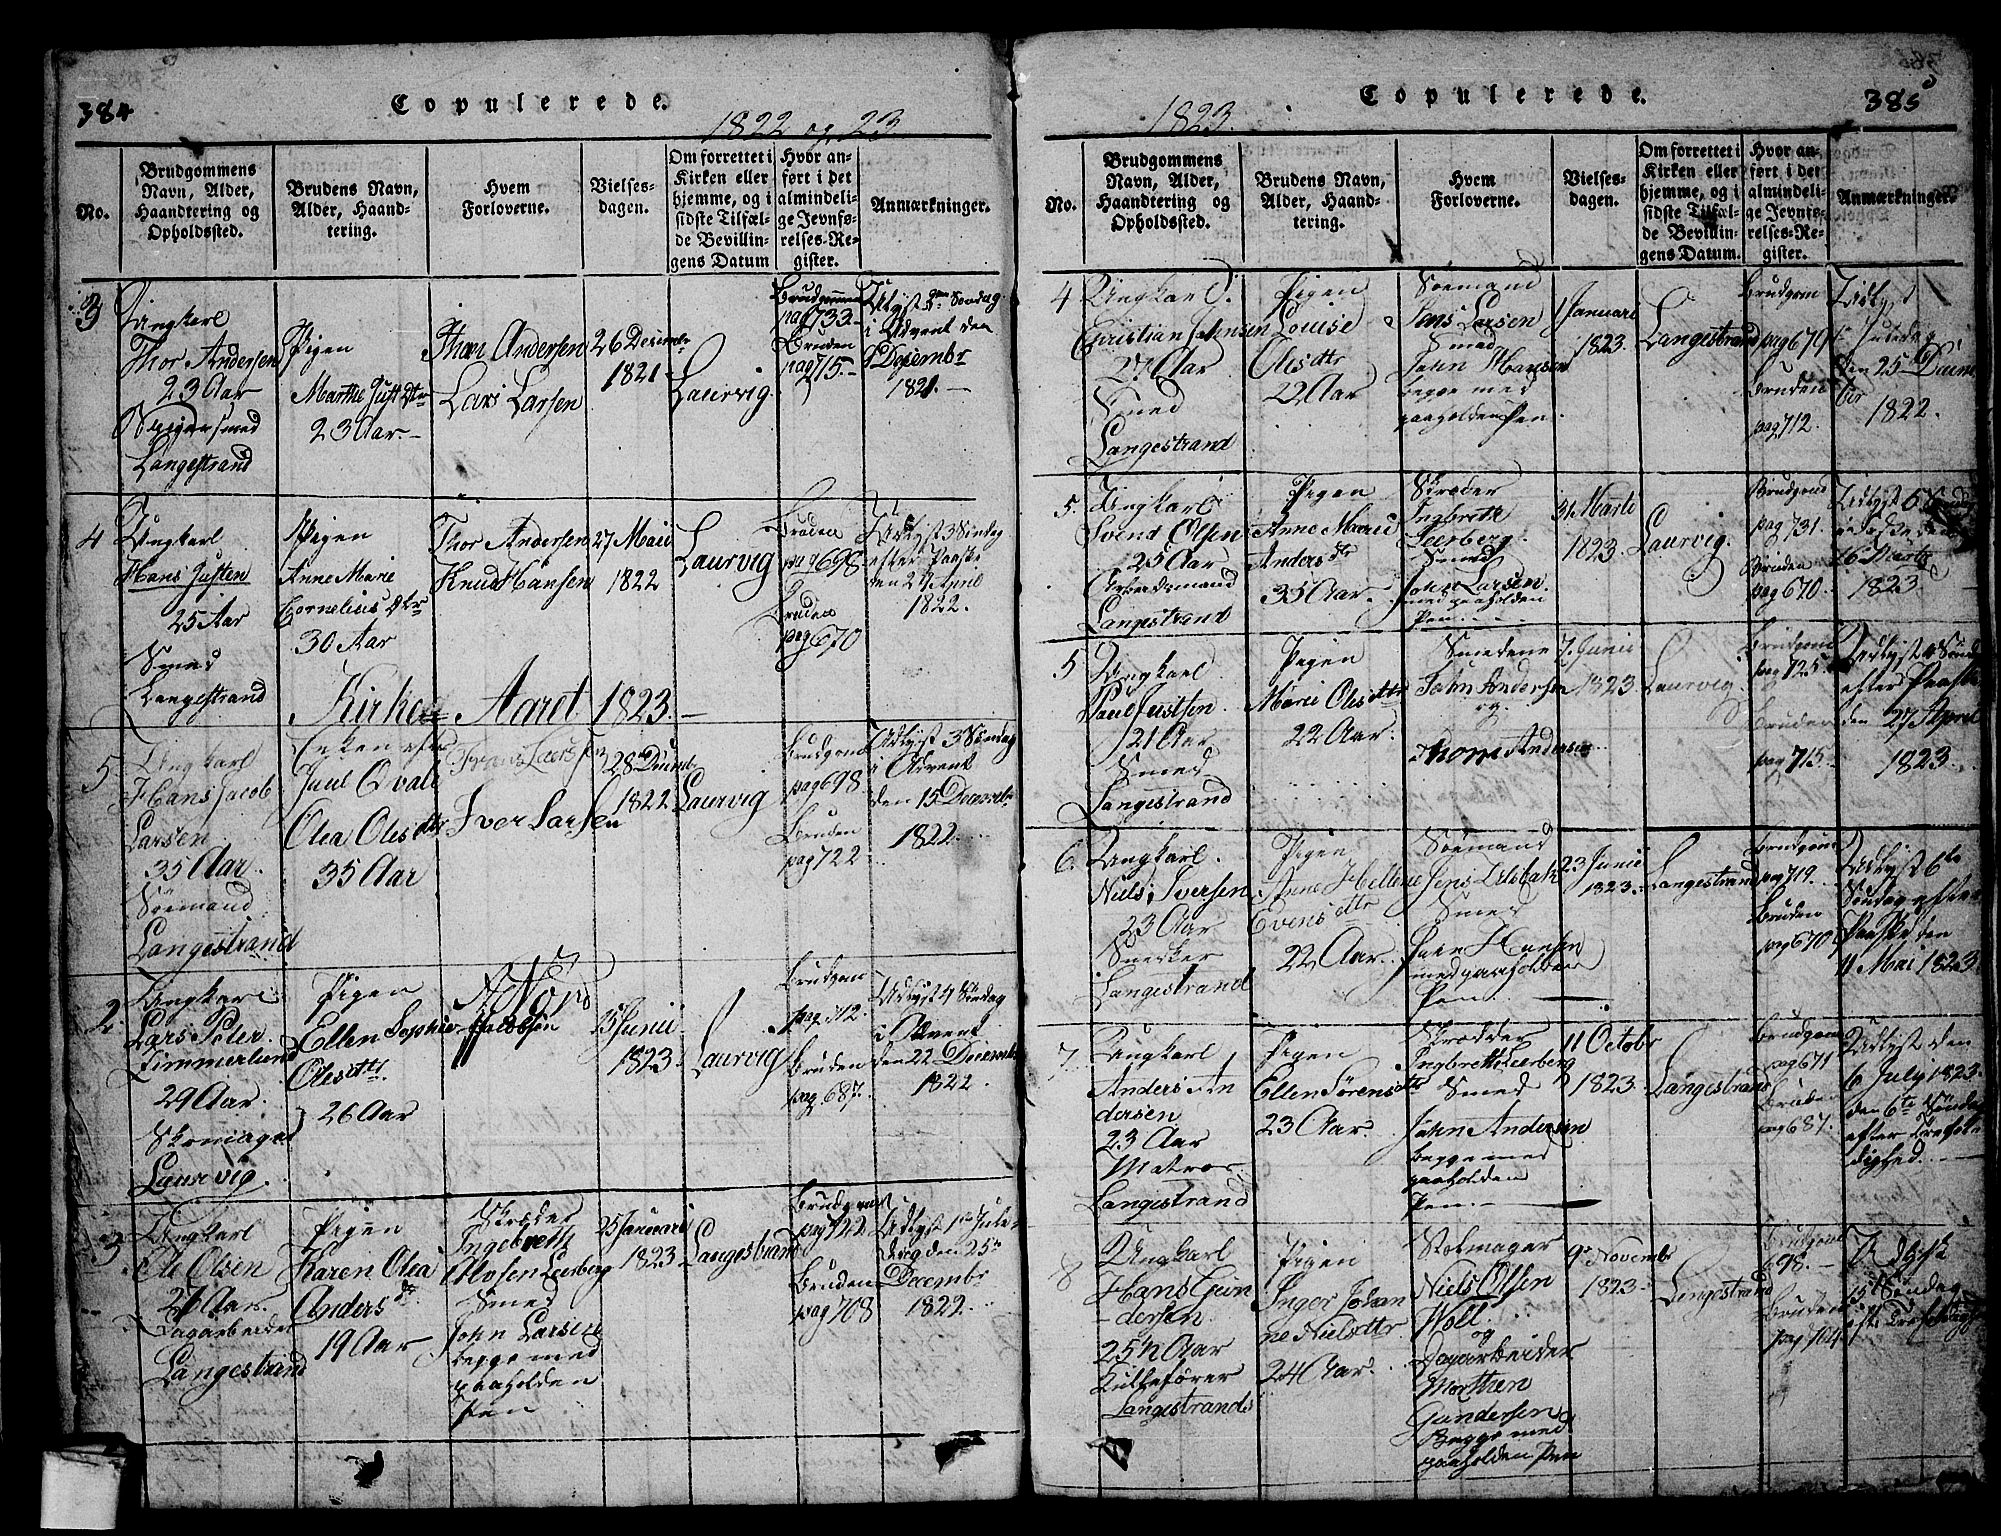 384
Copulerede.
1822 og 23
No.
Brudgommens
Navn, Alder,
Haandtering og
Opholdssted.
Brudens Navn,
Alder, Haand-
tering.
Hvem
Forloverne.
Vielses-
dagen.
Om forrettet i
Kirken eller
hjemme, og i
sidste Tilfæl-
de Bevillin-
gens Datum
Hvor an-
ført i det
almindeli-
ge Jevnfø-
relses-Re-
gister.
Anmærkninger.
3
Ungkarl
Thor Andersen
23 Aar
Langestrand
Pigen
Marthe Just Dtr
23 Aar.
Andersen
Lars Larsen
26 Desembr
1821
Laurvig
Brudgommen
pag 733.
Bruden
pag 715.
Udlyst Søndag
i Advent den
9 Decembr
1821.
4
Ungkarl
Hans Justen
25 Aar
Smed
Langestrand
Pigen
Anne Marie
Cornelius Dtr
30 Aar
Thor Andersen
Knud Hansen
27 Maii
1822
Laurvig
pag 698
Bruden
pag 670
Udlyst 3 Søndag
efter Paaske
den 27 April
1822.
Kirke Aaret 1823.
5
Ungkarl
Hans Jacob
Larsen
35 Aar.
Sømand
Langestrand
Enken efter
Paul Qvale
Olea Olesdtr
35 Aar
Iver Larsen
28 Decembr
1822
Laurvig
Brudgom
pag 698
Bruden
pag 722
Udlyst 3 Søndag
i Advent
den 15 Decembr
1822.
2
Ungkarl
Lars Peter
Zimmerlund
29 Aar.
Skomager
Laurvig.
Pigen
Ellen Sophie
Olesdtr
26 Aar
Jacobsen
15 Junii
1823.
Laurvig
Brudgom
pag. 712.
Bruden
pag. 687.
Udlyst 4 Søndag
i Advent
den 22 Decembr
1822.
3
Ungkarl
Ole Olsen
Aar.
Langestrand
Pigen
Karen Olea
Anders dr
19 Aar
Skræder
Ingebreth
Leerberg
Smed
John Larsen
begge med
paaholden
Pen
25 Januarii
1823
Langestrand
Brudgom
pag 722
Bruden
pag 708
Udlyst 1te Jule-
dag den 25de
Decembr
1822
1823.
Copulerede.
385
No.
Brudgommens
Navn, Alder,
Haandtering og
Opholdssted.
Brudens Navn,
Alder, Haand-
tering.
Hvem
Forloverne.
Vielses-
dagen.
Om forrettet i
Kirken eller
hjemme, og i
sidste Tilfæl-
de Bevillin-
gens Datum.
Hvor an-
ført i det
almindeli-
ge Jevnfø-
relses-Re-
gister.
Anmærkninger.
4
Ungkarl.
Christian Johnsen
27 Aar
Smed
Langestrand
Pigen
Louise
Olesdtr
22 Aar
Sømand
Jens Larsen
Smed
John Hansen
begge med
paaholden Pen
1 Januari
1823.
Langestrand
Brudgom
pag 679
Bruden
pag 712.
Udlyst
Juledag
den 25 Decem
ber
1822.
5.
Ungkarl
Svend Olsen
25 Aar
Arbeidsmand
Langestrand
Pigen
Anne Marie
Anders dr
35 Aar.
Skræder
Ingbreth
Leerberg.
Smed
John Larsen
med paaholden
Pen
31 Marti
1823
Laurvig.
Brudgom
pag 731.
Bruden
pag 670.
16 Marts
1823.
5
Ungkarl
Paul Justsen.
21 Aar
Smed
Langestrand
Pigen
Marie Olesdtr
22 Aar.
Smedene
John Andersen
og
Thore Andersen
7. Junii
1823
Laurvig.
Brudgom
pag 725.
Bruden
pag 715
Udlyst 4 Sønd
efter Paaske
den 27 April
1823
6.
Ungkarl.
Niels Iversen
23 Aar
Snecker
Langestrand
Pigen
Anne Hellene
Evensdtr
22 Aar.
Sømand
Smed
Hansen
med paaholden
Pen.
23 Junii
1823.
Langestrand
Brudgom
pag 719.
Bruden
pag 670
Udlyst 6te
Søndag efter
Paaske den
11 Mai 1823
7.
Ungkarl
Anders An
dersen
23 Aar
Matros
Langestrand
Pigen
Ellen Sørensdtr
23 Aar.
Skrædder
Ingbreth Leerberg
Smed
John Andersen
begge med
paaholden
Pen.
11 Octobr
1823
Langestrand
Brudgom
pag 671
Bruden
pag 687.
Udlyst den
6 July 1823
den 6te Søndag
efter Trefol-
dighed.
8
Ungkarl
Hans Gun
dersen
25½ Aar
Langestrand
Pigen
Inger Johan
ne Nielsdtr
24 Aar.
Niels Olsen
Woll
og
Dagarbeider
Morthen
Gundersen
Begge med
paaholden Pen
9 Novembr
1823
Langestrand
Brudgom
698.
Bruden
pag 704
Udlyst
15 Søndag